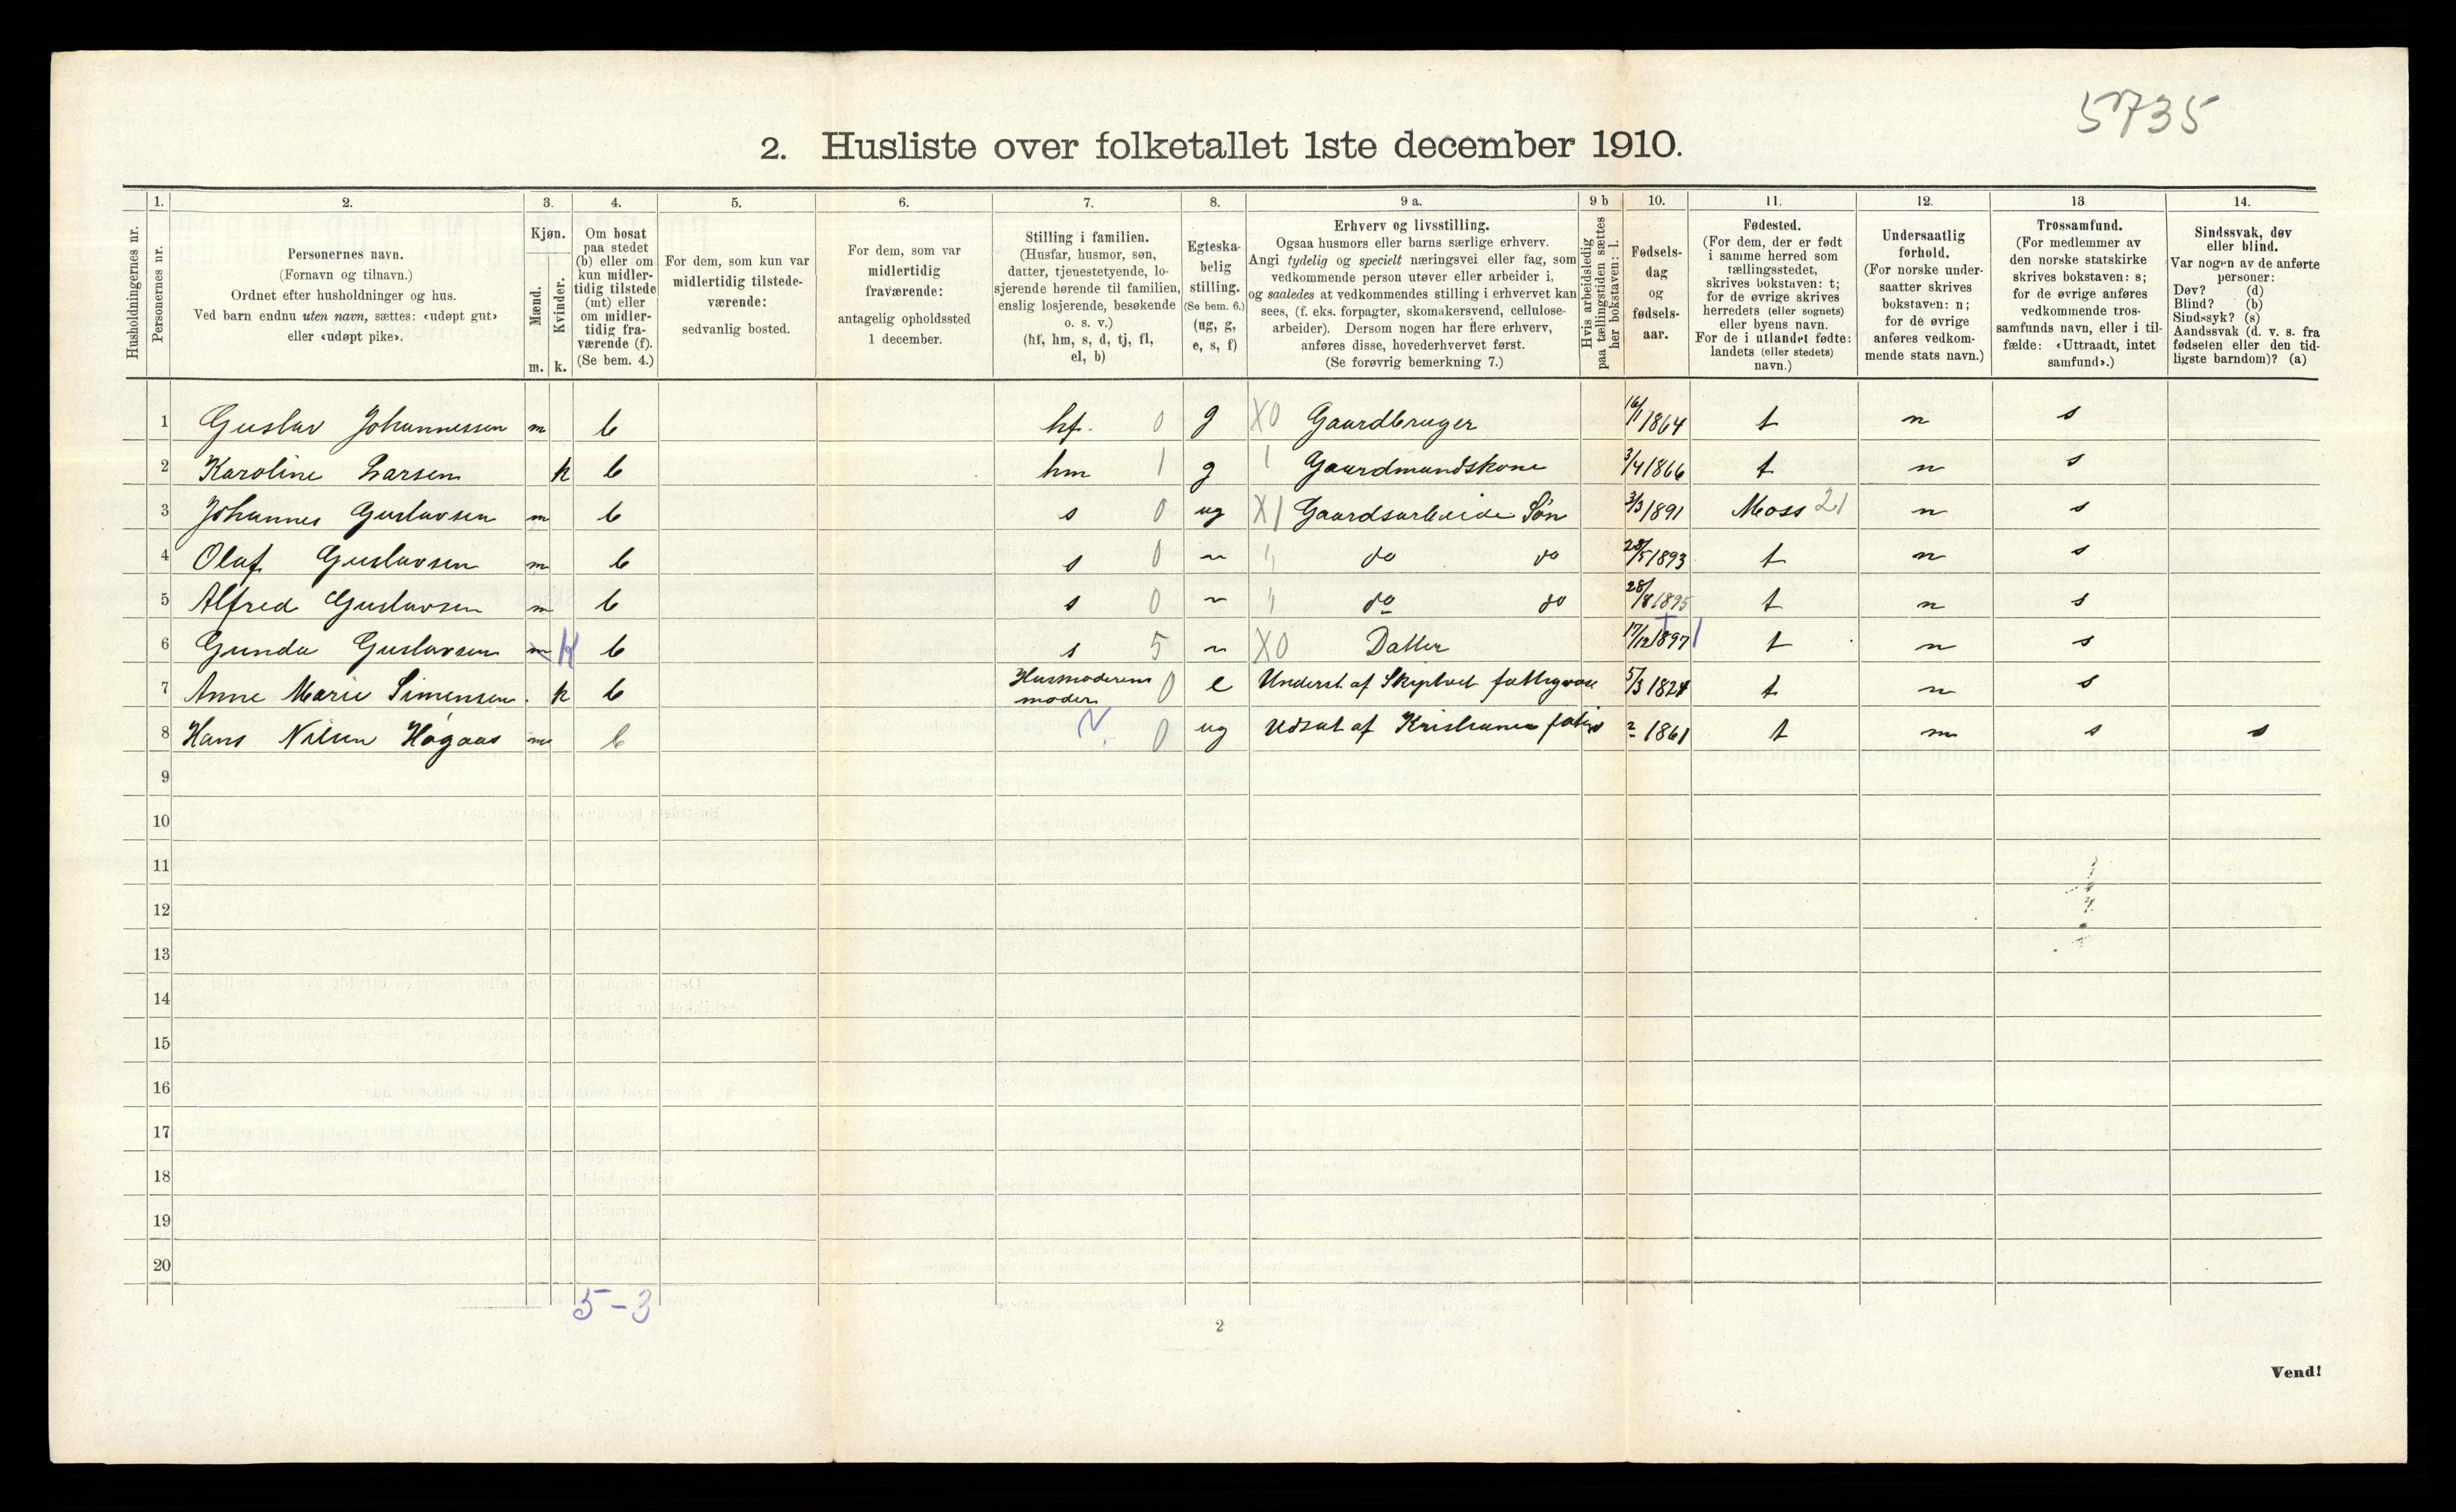 5735
2. Husliste over folketallet 1ste december 1910.
Husholdningernes nr.
1.
Personernes nr.
2.
Personernes navn.
(Fornavn og tilnavn.)
Ordnet efter husholdninger og hus.
Ved barn endnu uten navn, sættes: «udøpt gut»
eller «udøpt pike».
3.
Kjøn.
Mænd.
Kvinder.
m. k.
4.
Om bosat
paa stedet
(b) eller om
kun midler-
tidig tilstede
(mt) eller
om midler-
tidig fra-
værende (f).
(Se bem. 4.)
5.
For dem, som kun var
midlertidig tilstede-
værende:
sedvanlig bosted.
6.
For dem, som var
midlertidig
fraværende:
antagelig opholdssted
1 december.
7.
Stilling i familien.
(Husfar, husmor, søn,
datter, tjenestetyende, lo-
sjerende hørende til familien,
enslig losjerende, besøkende
o. s. v.)
(hf, hm, s, d, tj, fl,
el, b)
8.
Egteska-
belig
stilling.
(Se bem. 6.)
(ug, g,
e, s, f)
9 a.
Erhverv og livsstilling.
Ogsaa husmors eller barns særlige erhverv.
Angi tydelig og specielt næringsvei eller fag, som
vedkommende person utøver eller arbeider i,
og saaledes at vedkommendes stilling i erhvervet kan
sees, (f. eks. forpagter, skomakersvend, cellulose-
arbeider). Dersom nogen har flere erhverv,
anføres disse, hovederhvervet først.
(Se forøvrig bemerkning 7.)
9 b
Hvis arbeidsledig
paa tællingstiden sættes
her bokstaven: l.
10.
Fødsels-
dag
og
fødsels-
aar.
11.
Fødested.
(For dem, der er født
i samme herred som
tællingsstedet,
skrives bokstaven: t;
for de øvrige skrives
herredets (eller sognets)
eller byens navn.
For de i utlandet fødte:
landets (eller stedets)
navn.)
12.
Undersaatlig
forhold.
(For norske under-
saatter skrives
bokstaven: n;
for de øvrige
anføres vedkom-
mende stats navn.)
13
Trossamfund.
(For medlemmer av
den norske statskirke
skrives bokstaven: s;
for de øvrige anføres
vedkommende tros-
samfunds navn, eller i til-
fælde: «Uttraadt, intet
samfund».)
14.
Sindssvak, døv
eller blind.
Var nogen av de anførte
personer:
Døv? (d)
Blind? (b)
Sindssyk? (s)
Aandssvak (d. v. s. fra
fødselen eller den tid-
ligste barndom)? (a)
1 Gustav Johannessen m b hf. 0 g X0 Gaardbruger 16/1 1864 t n s
2 Karoline Larsen k b hm 1 g 1 Gaardmandskone 3/4 1866 t n s
3 Johannes Gustavsen m b s 0 ug X1 Gaardsarbeide Søn 3/3 1891 Moss 21 n s
4 Olaf Gustavsen m b s 0 " do do 28/5 1893 t n s
5 Alfred Gustavsen m b s 0 " do do 28/8 1895 t n s
6 Gunda Gustavsen m K b s 5 X0 Datter 17/12 1897 t n s
7 Anne Marie Simensen. k b Husmoderens moder 0 e Underst. af Skiptvet fattigvæse 5/3 1824 t n s
8 Hans Nilsen Høgaas m b 0 ug Udsat af Kristiania 1861 t n s s
9
10
11
12
13
14
15
16
17
18
19
20
5-3
2
Vend!